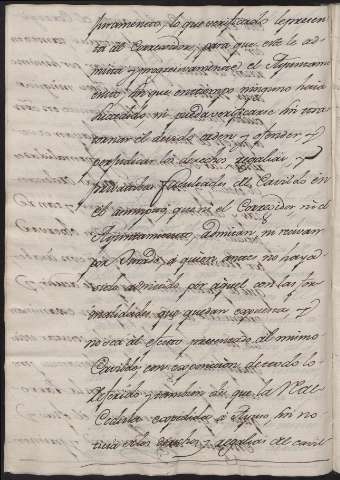 juramento, lo que verificado le presen
ta al Corregidor, para que este le ad
mita y posteriormente el Ayuntami
ento sin que en tiempo ninguno haia
sucedido ni pueda verificarse sin tras
tornar el devido orden y ofender, y
perjudicar los derechos regalias, y
privativas facultades del Cavildo en
el que ni el Corregidor, ni el
Ayuntamiento, admitan, ni reciban
por Jurado, a quien antes no haya
sido admitido por aquel con las for
malidades que quedan expuestas, y
no sea al efecto presentado al mismo
Cavildo, en exposicion de todo lo
referido y tambien de que la Real
Cedula expedida a sin no
ticia de los derechos y regalias del cavil